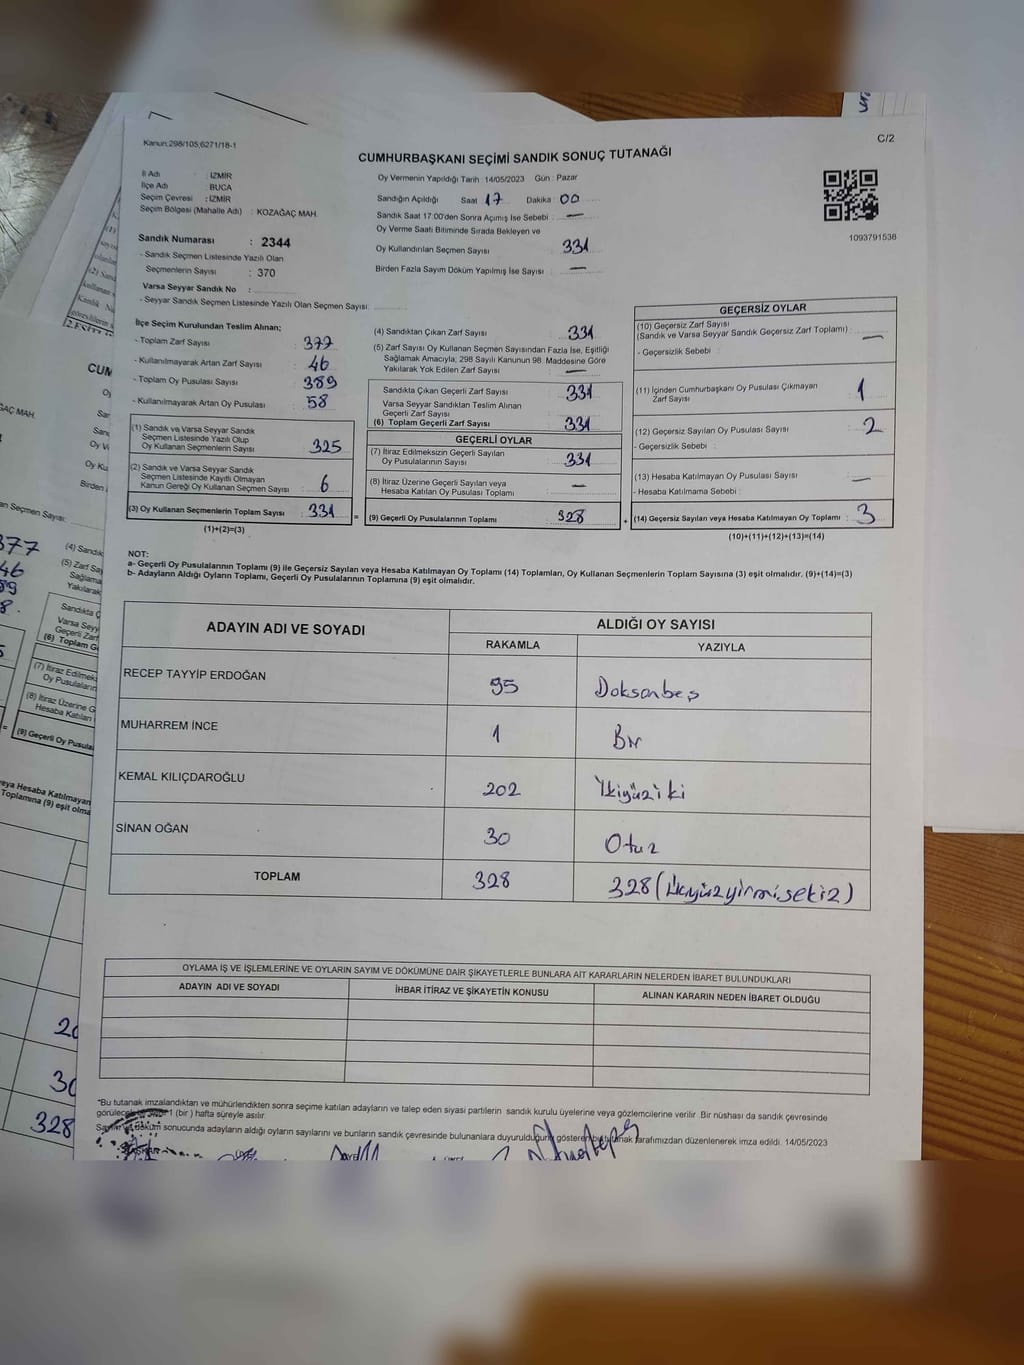 Kanun:298/105,6271/18-1
C/2
CUMHURBAŞKANI SEÇİMİ SANDIK SONUÇ TUTANAĞI
İl Adı : İZMİR
İlçe Adı : BUCA
Seçim Çevresi : İZMİR
Seçim Bölgesi (Mahalle Adı) : KOZAĞAÇ MAH.
Sandık Numarası : 2344
- Sandık Seçmen Listesinde Yazılı Olan
Seçmenlerin Sayısı : 370
Varsa Seyyar Sandık No :
- Seyyar Sandık Seçmen Listesinde Yazılı Olan Seçmen Sayısı:
Oy Vermenin Yapıldığı Tarih : 14/05/2023 Gün : Pazar
Sandığın Açıldığı Saat 17 Dakika : 00
Sandık Saat 17:00'den Sonra Açımış İse Sebebi : —
Oy Verme Saati Bitiminde Sırada Bekleyen ve
Oy Kullandırılan Seçmen Sayısı 331
Birden Fazla Sayım Döküm Yapılmış İse Sayısı : —
1093791536
İlçe Seçim Kurulundan Teslim Alınan;
- Toplam Zarf Sayısı : 377
- Kullanılmayarak Artan Zarf Sayısı : 46
- Toplam Oy Pusulası Sayısı : 389
- Kullanılmayarak Artan Oy Pusulası : 58
(1) Sandık ve Varsa Seyyar Sandık
Seçmen Listesinde Yazılı Olup
Oy Kullanan Seçmenlerin Sayısı : 325
(2) Sandık ve Varsa Seyyar Sandık
Seçmen Listesinde Kayıtlı Olmayan
Kanun Gereği Oy Kullanan Seçmen Sayısı : 6
(3) Oy Kullanan Seçmenlerin Toplam Sayısı : 331
(1)+(2)=(3)
(4) Sandıktan Çıkan Zarf Sayısı : 331
(5) Zarf Sayısı Oy Kullanan Seçmen Sayısından Fazla İse, Eşitliği
Sağlamak Amacıyla, 298 Sayılı Kanunun 98. Maddesine Göre
Yakılarak Yok Edilen Zarf Sayısı : —
Sandıkta Çıkan Geçerli Zarf Sayısı : 331
Varsa Seyyar Sandıktan Teslim Alınan
Geçerli Zarf Sayısı
(6) Toplam Geçerli Zarf Sayısı : 331
GEÇERLİ OYLAR
(7) İtiraz Edilmeksizin Geçerli Sayılan
Oy Pusulalarının Sayısı : 331
(8) İtiraz Üzerine Geçerli Sayılan veya
Hesaba Katılan Oy Pusulası Toplamı : —
= (9) Geçerli Oy Pusulalarının Toplamı : 328
GEÇERSİZ OYLAR
(10) Geçersiz Zarf Sayısı
(Sandık ve Varsa Seyyar Sandık Geçersiz Zarf Toplamı) : —
- Geçersizlik Sebebi :
(11) İçinden Cumhurbaşkanı Oy Pusulası Çıkmayan
Zarf Sayısı : 1
(12) Geçersiz Sayılan Oy Pusulası Sayısı : 2
- Geçersizlik Sebebi :
(13) Hesaba Katılmayan Oy Pusulası Sayısı : —
- Hesaba Katılmama Sebebi :
+ (14) Geçersiz Sayılan veya Hesaba Katılmayan Oy Toplamı : 3
(10)+(11)+(12)+(13)=(14)
NOT:
a- Geçerli Oy Pusulalarının Toplamı (9) ile Geçersiz Sayılan veya Hesaba Katılmayan Oy Toplamı (14) Toplamları, Oy Kullanan Seçmenlerin Toplam Sayısına (3) eşit olmalıdır. (9)+(14)=(3)
b- Adayların Aldığı Oyların Toplamı, Geçerli Oy Pusulalarının Toplamına (9) eşit olmalıdır.
ADAYIN ADI VE SOYADI
ALDIĞI OY SAYISI
RAKAMLA YAZIYLA
RECEP TAYYİP ERDOĞAN 95 Doksanbeş
MUHARREM İNCE 1 Bir
KEMAL KILIÇDAROĞLU 202 İkiyüziki
SİNAN OĞAN 30 Otuz
TOPLAM 328 328 (Üçyüzyirmisekiz)
OYLAMA İŞ VE İŞLEMLERİNE VE OYLARIN SAYIM VE DÖKÜMÜNE DAİR ŞİKAYETLERLE BUNLARA AİT KARARLARIN NELERDEN İBARET BULUNDUKLARI
ADAYIN ADI VE SOYADI İHBAR İTİRAZ VE ŞİKAYETİN KONUSU ALINAN KARARIN NEDEN İBARET OLDUĞU
*Bu tutanak imzalandıktan ve mühürlendikten sonra seçime katılan adayların ve talep eden siyasi partilerin sandık kurulu üyelerine veya gözlemcilerine verilir. Bir nüshası da sandık çevresinde
1 (bir) hafta süreyle asılır.
döküm sonucunda adayların aldığı oyların sayılarını ve bunların sandık çevresinde bulunanlara duyurulduğunu gösteren bu tutanak tarafımızdan düzenlenerek imza edildi. 14/05/2023